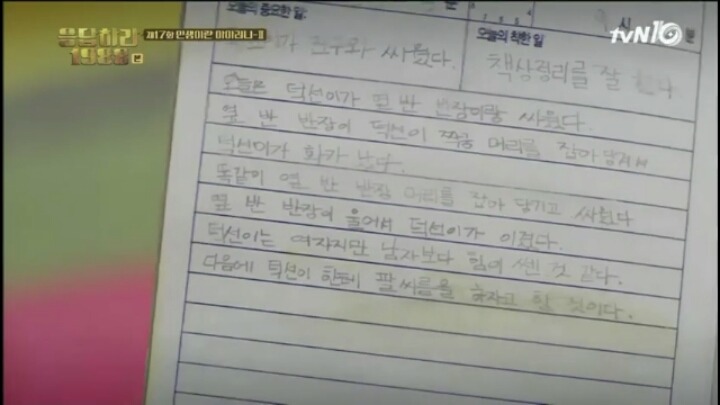 응답하라 1988 본
제17화 인생이란 아이러니-II
tvN10
오늘의 중요한 일:
시 분
가 친구와 싸웠다.
오늘의 착한 일
책상정리를 잘 한다.
오늘은 덕선이가 옆 반 반장이랑 싸웠다.
옆 반 반장이 덕선이 짝꿍 머리를 잡아 당겨서
덕선이가 화가 났다.
똑같이 옆 반 반장 머리를 잡아 당기고 싸웠다
옆 반 반장이 울어서 덕선이가 이겼다.
덕선이는 여자지만 남자보다 힘이 쎈 것 같다.
다음에 덕선이 한테 팔씨름을 하자고 할 것이다.